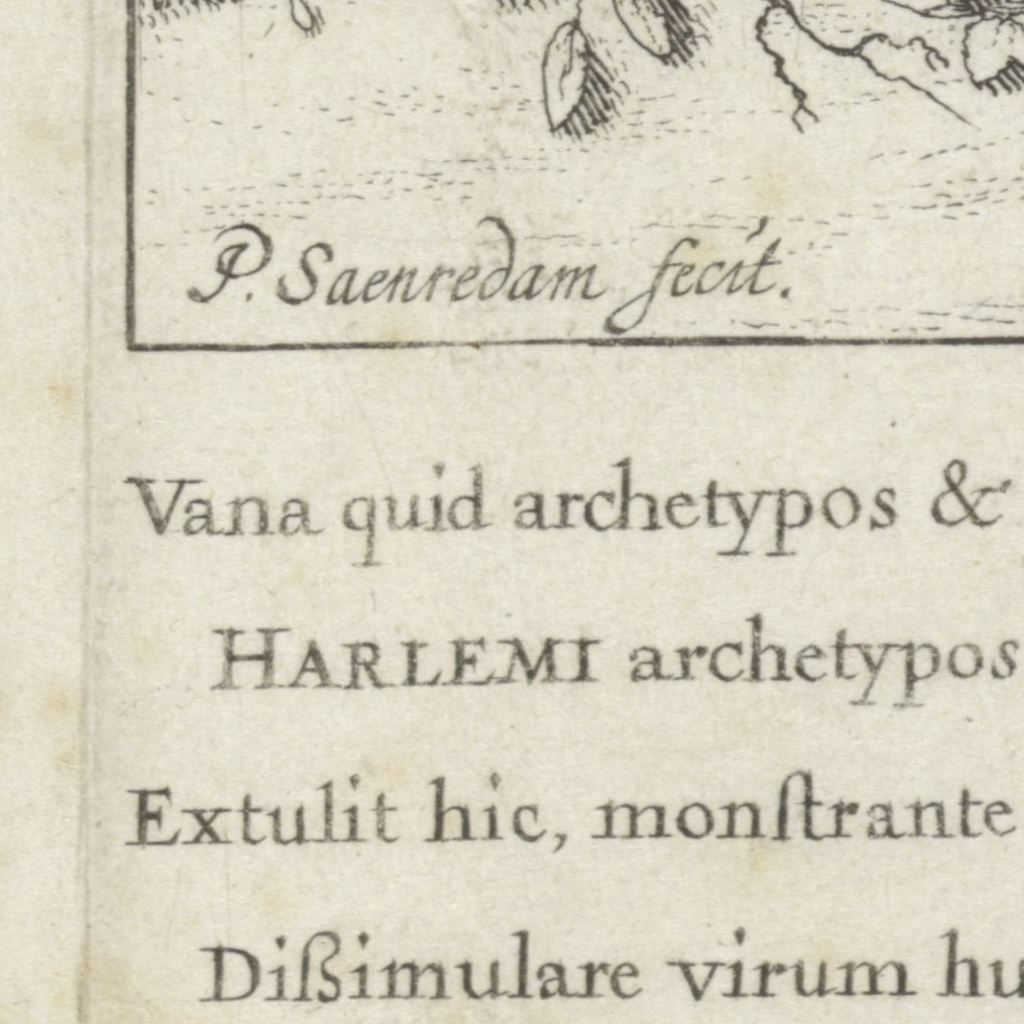 P. Saenredam fecit.
Vana quid archetypos &
HARLEMI archetypos
Extulit hic, monſtrante
Dißimulare virum hu